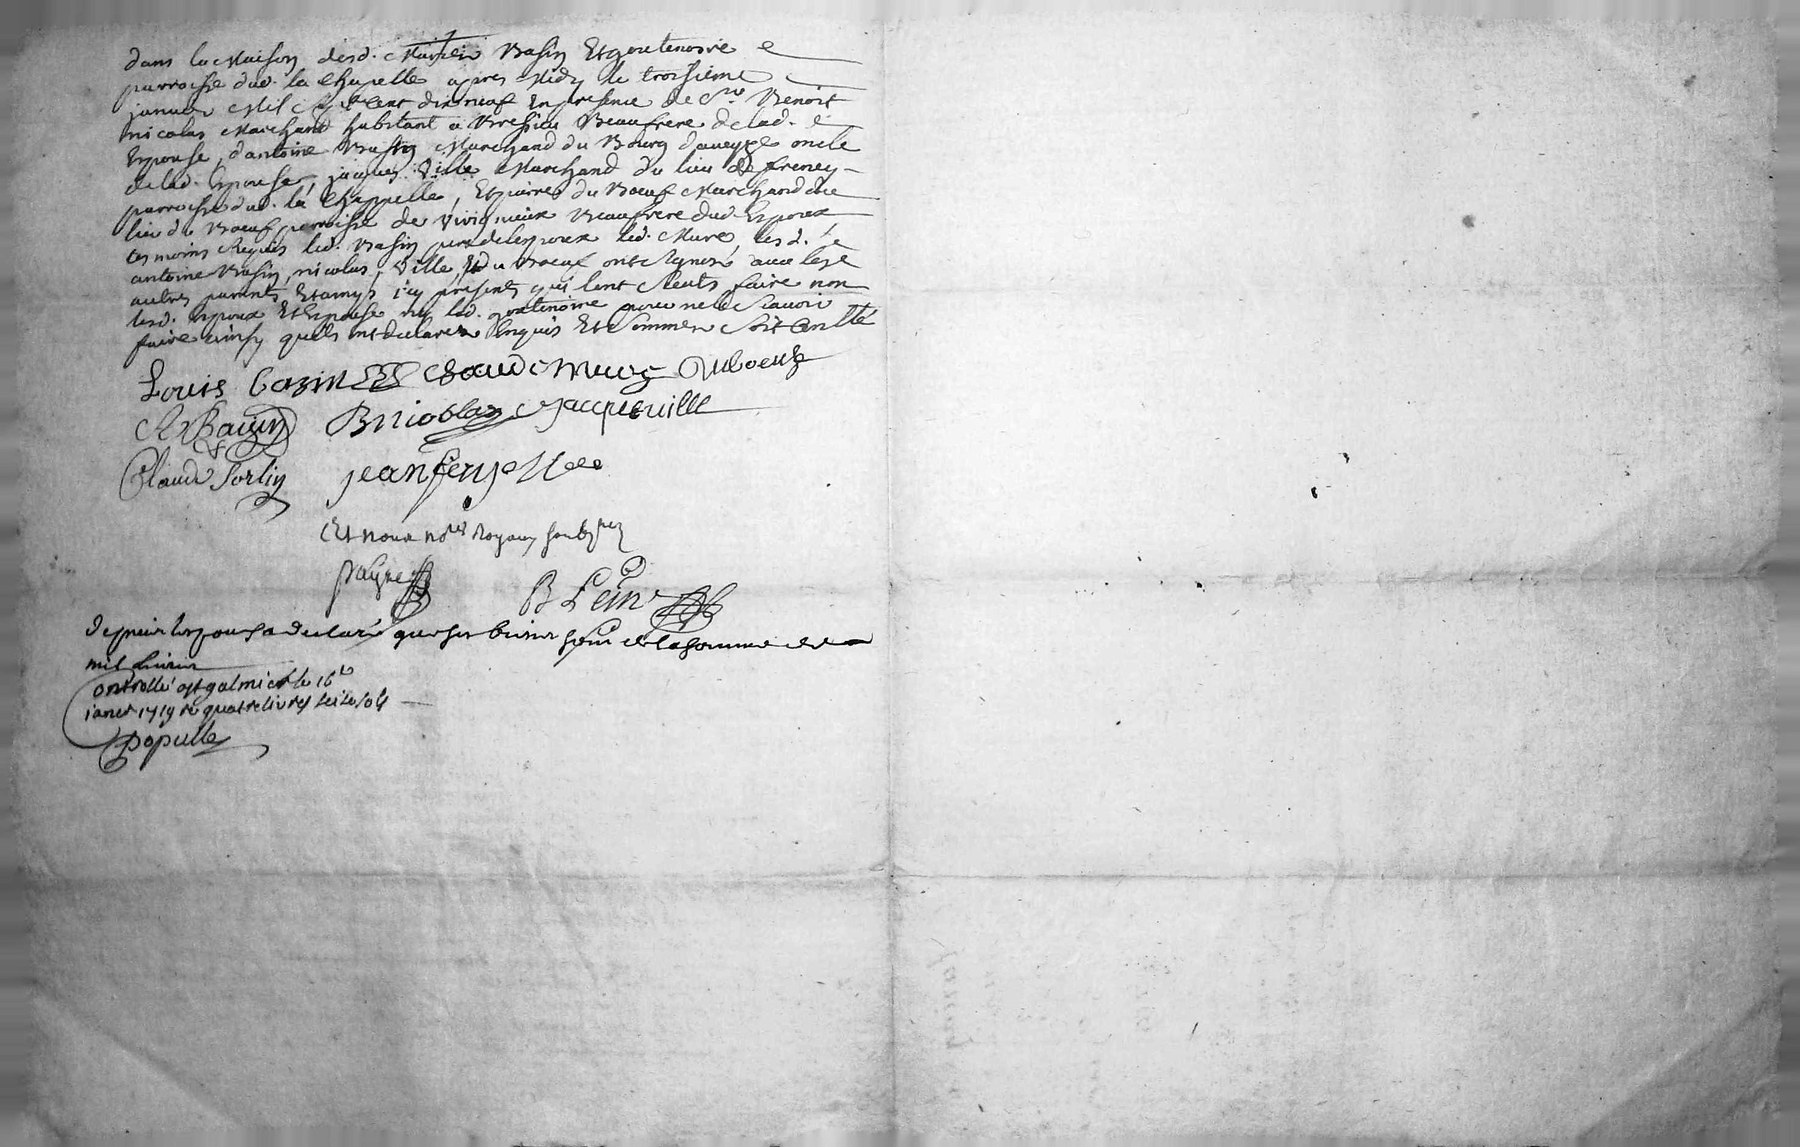 dans la Maison desd. Mariés Basin Et goutenoire
parroisse dud. la Chapelle apres Midy le troisieme
janvier Mil Sept Cent dix neuf En presence de Sr. Benoit
nicolas Marchand habitant a Bressieu Beaufrere de lad.
Espouse, d'antoine Basin Marchand du Bourg d'aveyze oncle
de lad. Espouse, jacques Ville Marchand du lieu de freney
parroisse dud. la Chappelle, Et pierre du Boeuf Marchand du
lieu du Boeuf parroisse de Virigneux Beaufrere dud. Espoux
tesmoins Requis led. Basin pere de lespoux led. Mure, lesd.
antoine Basin, nicolas, Ville, Et du Boeuf ont Signé avec les
autres parents Et amys icy présents qui l'ont Sceuts faire non
lesd. Espoux Et Espouse ny lad. goutenoire pour ne le Scavoir
faire ainsy quels ont declarez Enquis Et Sommez Soit Conllé
Louis bazin Claude Mure Duboeuf
A Bazin B nicolas Jacque ville
Claude Sorlin jean
Et nous nores Royaux soubsnez
payre B
depuis lespouse a declaré que ses biens sont de la somme de
mil livres
Controllé a St galmier le 16e
janer 1719 R quatre livres seize sols
populle